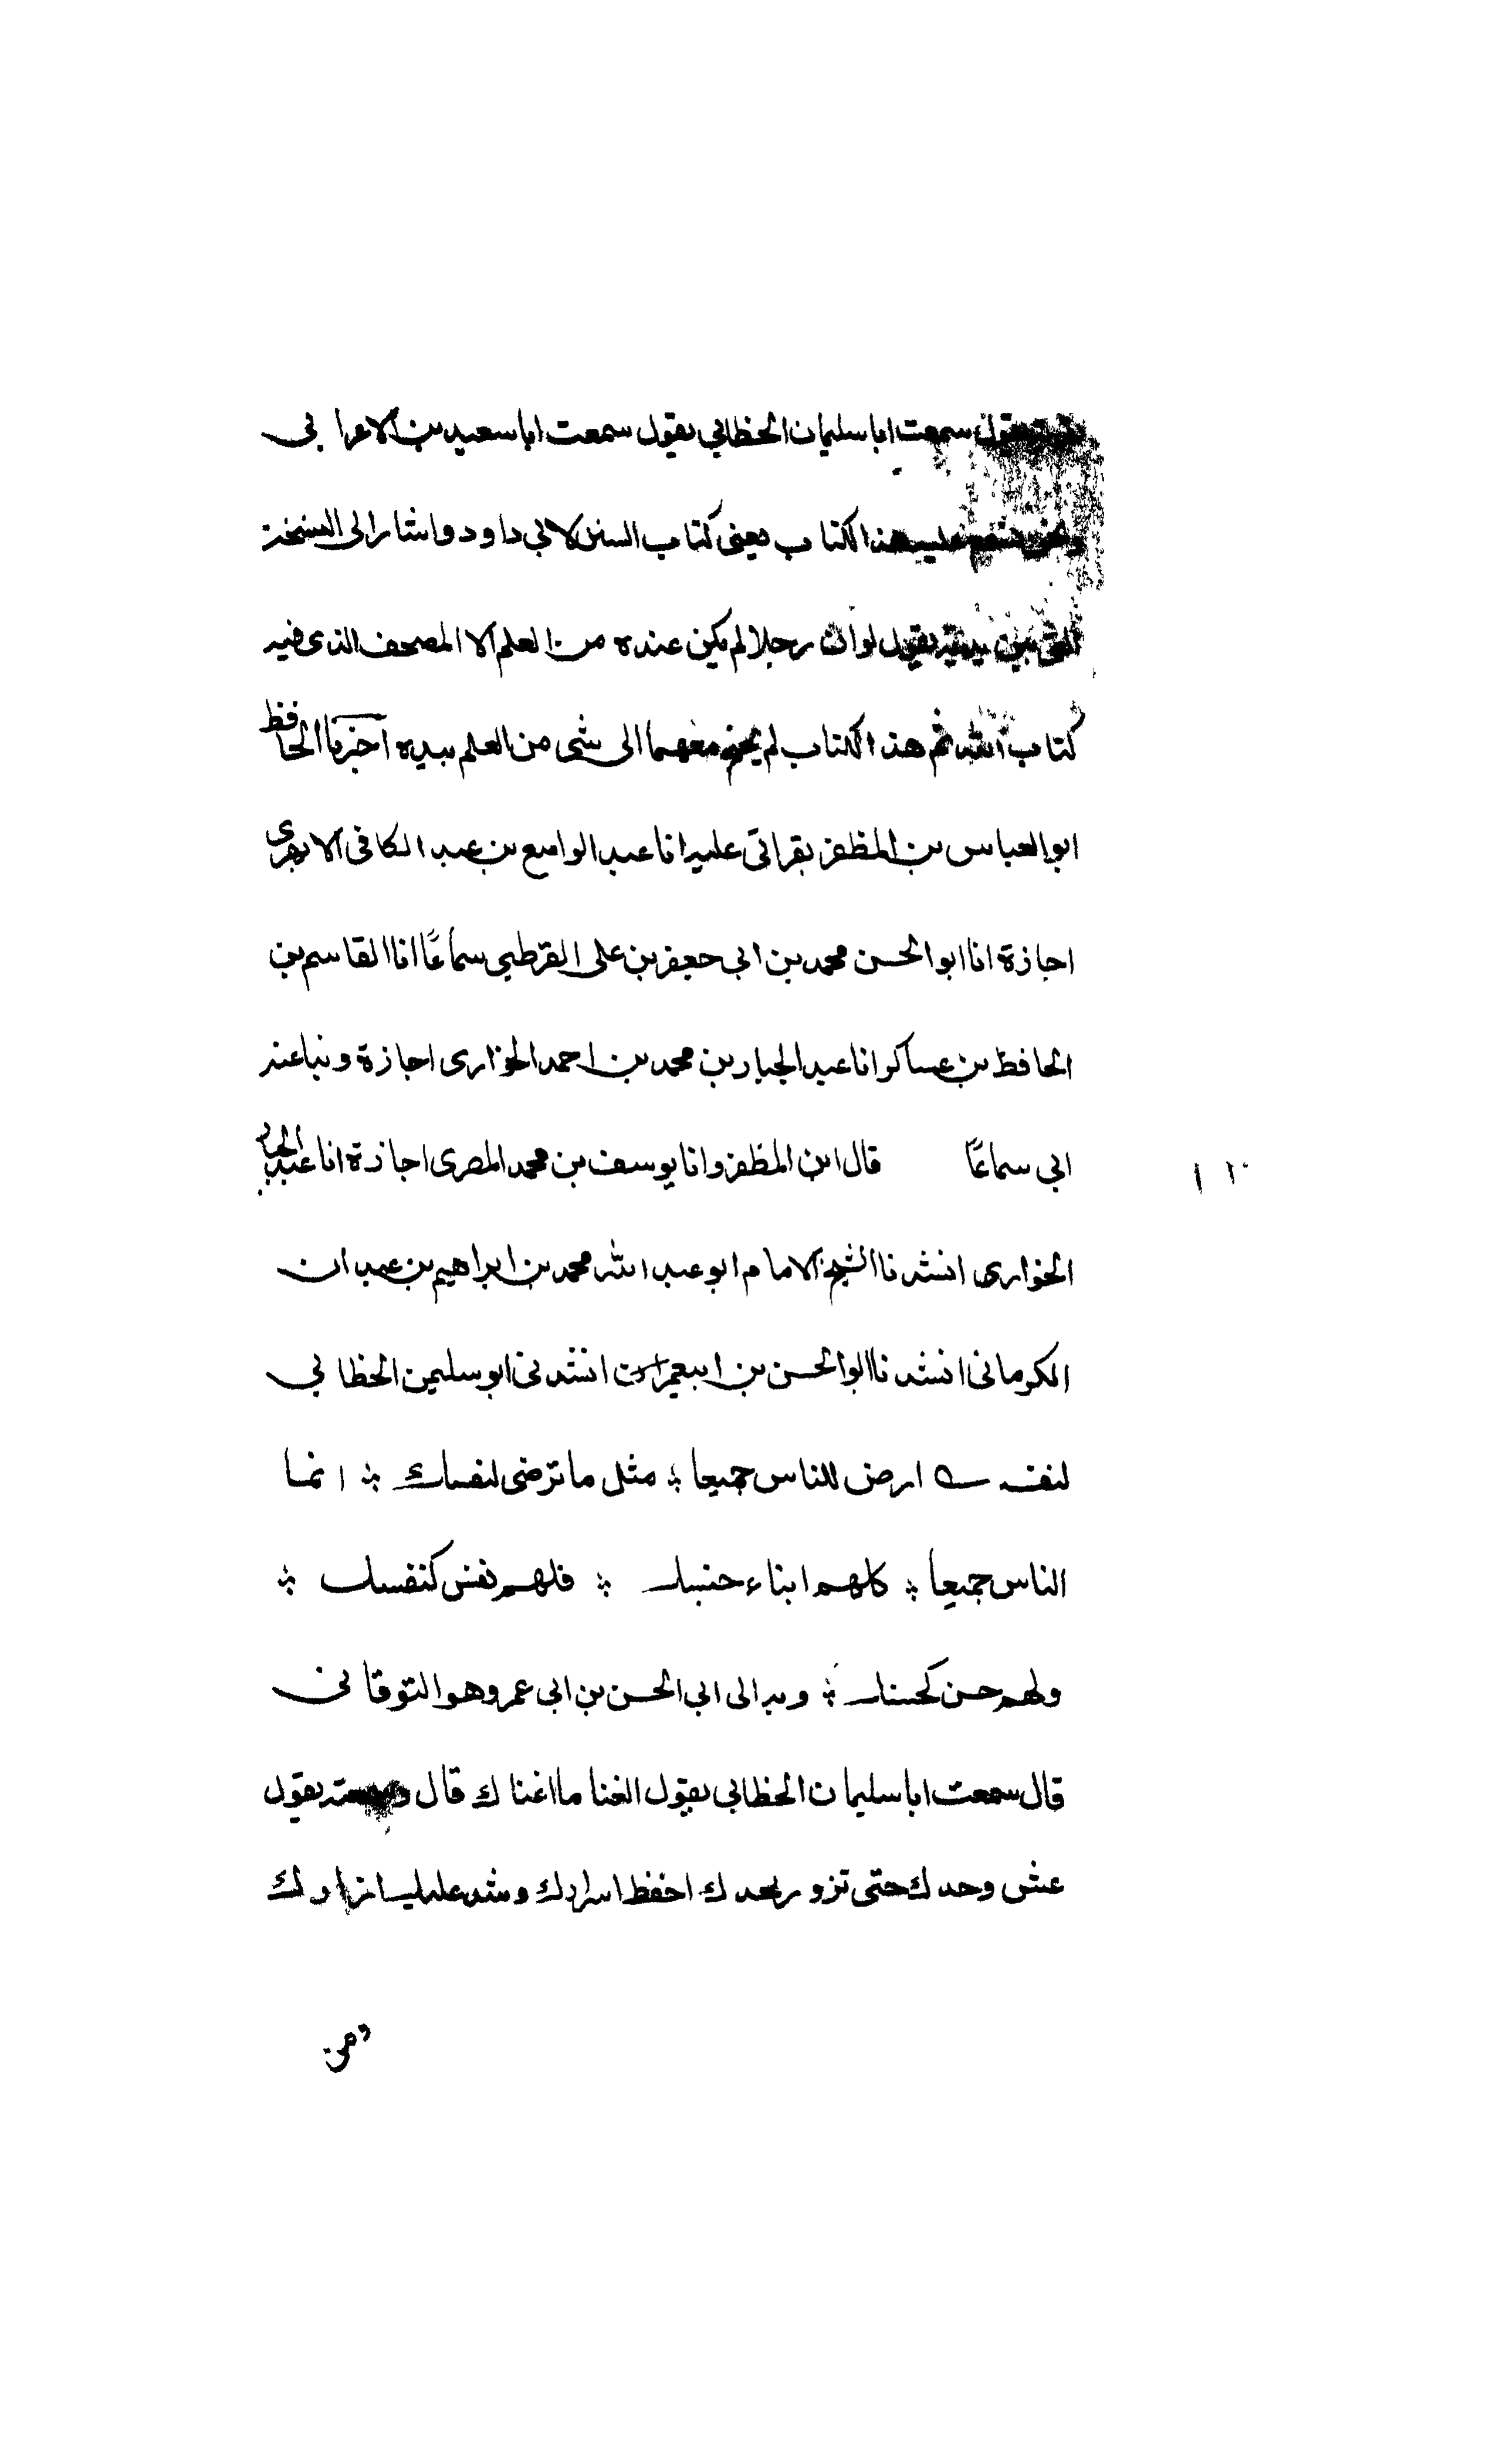 يقول سمعت ابا سليمان الخطابي يقول سمعت ابا سعيد بن الاعرابي
ونحن نسمع عليه هذا الكتاب يعني كتاب السنن لابي داود واشار الى النسخة
التي بين يديه يقول لو ان رجلا لم يكن عنده من العلم الا المصحف الذى فيه
كتاب الله ثم هذا الكتاب لم يحتج معهما الى شى من العلم بيده اخبرنا الحافظ
ابو العباس بن المظفر بقراتى عليه انا عبد الواسع بن عبد الكافى الابهرى
اجازة انا ابو الحسن محمد بن ابي جعفر بن على القرطبي سماعًا انا القاسم بن
الحافظ بن عساكر انا عبد الجبار بن محمد بن احمد الخوارى اجازة وثنا عنه
ابي سماعًا قال ابن المظفر وانا يوسف بن محمد المصرى اجازة انا عبد الجبار
الخوارى انشدنا الشيخ الامام ابو عبد الله محمد بن ابراهيم بن عبدان
الكرمانى انشدنا ابو الحسن بن انشدنى ابو سليمن الخطابي
لنفسه ارض للناس جميعا مثل ما ترضى لنفسك انما
الناس جميعا كلهم ابناء جنسك فلهم نفس كنفسك
ولهم حس كحسك وبه الى ابي الحسن بن ابي عمر وهو النوقانى
قال سمعت ابا سليمان الخطابي يقول الغنا ما اغناك قال وسمعته يقول
عش وحدك حتى تزور لحدك احفظ اسرارك وشد عليك ازارك
ومن